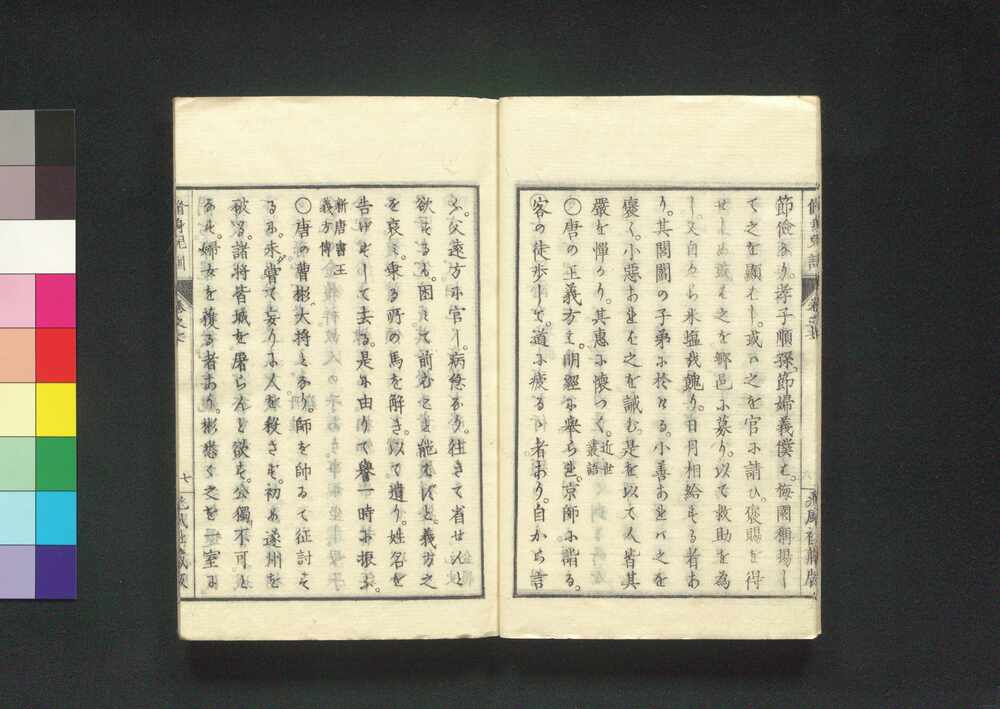 節儉なり。孝子順孫、節婦義僕は、悔閣稱揚し
て之を顯はし。或ハ之を官に請ひ。褒賜を得
せしめ或は之を鄉邑に募り。以て救助を為
し。又自から米塩我餽り。日月相給する者あ
り。其閭閻の子弟に於ける。小善あれバ之を
褒く。小惡あれを之を誡む。是を以て人皆其
嚴を憚かり。其惠に懷つく。近世叢語
〇唐の王義方は。明經に舉られ。京師に詣る。
客の徒歩して。道に疲るゝ者あり。自から言
く。父遠方に官し。病篤なり。往きて省せんと
欲するも。困して前むこと能はずと。義方之
を哀ミ。乘る所の馬を解き。以て遺り。姓名を
告けずして去る。是に由りて譽一時に振ふ。
新唐書王
義方傳
〇唐の曹彬。大將となり。師を帥ゐて征討す
るに。未嘗て妄りに人を殺さず。初め遂州を
破る。諸將皆城を屠らんと欲す。公獨不可と
す。婦女を獲る者あり。彬悉く之を一室に
脩身兒訓
卷之七
七